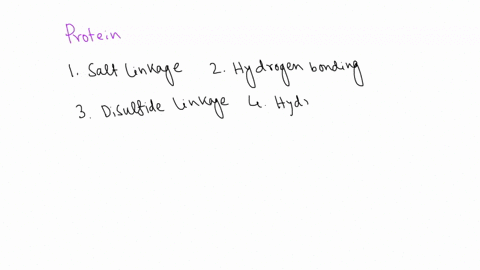 Protein
1. Salt linkage 2. Hydrogen bonding
3. Disulfide linkage 4. Hyd